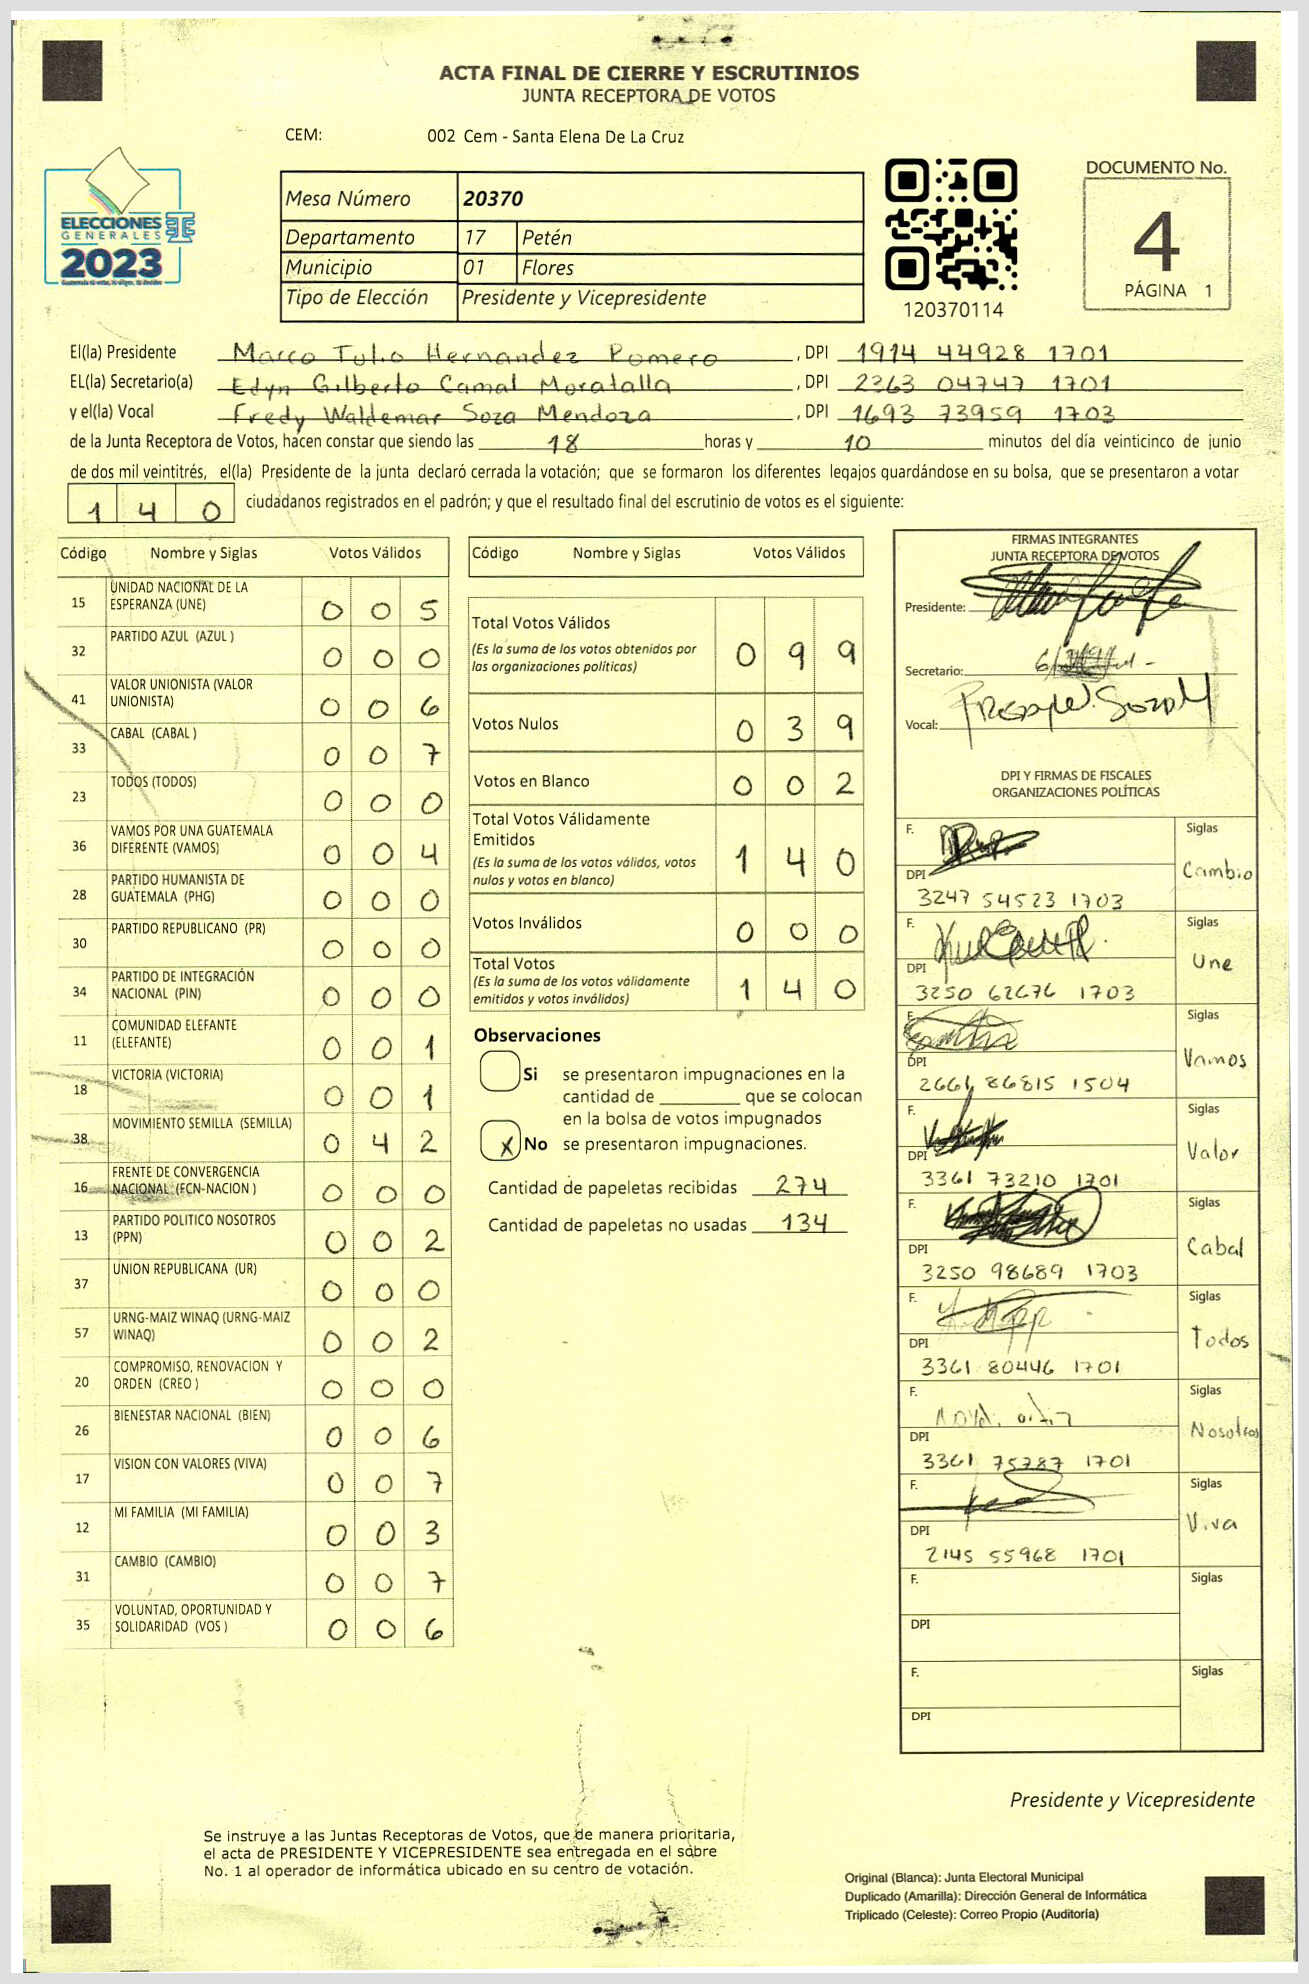 ACTA FINAL DE CIERRE Y ESCRUTINIOS
JUNTA RECEPTORA DE VOTOS
CEM: 002 Cem - Santa Elena De La Cruz
ELECCIONES
GENERALES
2023
Mesa Número 20370
Departamento 17 Petén
Municipio 01 Flores
Tipo de Elección Presidente y Vicepresidente
120370114
DOCUMENTO No.
4
PÁGINA 1
El(la) Presidente Marco Tulio Hernandez Romero, DPI 1914 44928 1701
EL(la) Secretario(a) Edyn Gilberto Camal Moratalla, DPI 2363 04747 1701
y el(la) Vocal Fredy Waldemar Soza Mendoza, DPI 1693 73959 1703
de la Junta Receptora de Votos, hacen constar que siendo las 18 horas y 10 minutos del día veinticinco de junio
de dos mil veintitrés, el(la) Presidente de la junta declaró cerrada la votación; que se formaron los diferentes legajos guardándose en su bolsa, que se presentaron a votar
140 ciudadanos registrados en el padrón; y que el resultado final del escrutinio de votos es el siguiente:
Código Nombre y Siglas Votos Válidos
15 UNIDAD NACIONAL DE LA
ESPERANZA (UNE) 0 0 5
32 PARTIDO AZUL (AZUL ) 0 0 0
41 VALOR UNIONISTA (VALOR
UNIONISTA) 0 0 6
33 CABAL (CABAL ) 0 0 7
23 TODOS (TODOS) 0 0 0
36 VAMOS POR UNA GUATEMALA
DIFERENTE (VAMOS) 0 0 4
28 PARTIDO HUMANISTA DE
GUATEMALA (PHG) 0 0 0
30 PARTIDO REPUBLICANO (PR) 0 0 0
34 PARTIDO DE INTEGRACIÓN
NACIONAL (PIN) 0 0 0
11 COMUNIDAD ELEFANTE
(ELEFANTE) 0 0 1
18 VICTORIA (VICTORIA) 0 0 1
38 MOVIMIENTO SEMILLA (SEMILLA) 0 4 2
16 FRENTE DE CONVERGENCIA
NACIONAL (FCN-NACION ) 0 0 0
13 PARTIDO POLITICO NOSOTROS
(PPN) 0 0 2
37 UNION REPUBLICANA (UR) 0 0 0
57 URNG-MAIZ WINAQ (URNG-MAIZ
WINAQ) 0 0 2
20 COMPROMISO, RENOVACION Y
ORDEN (CREO ) 0 0 0
26 BIENESTAR NACIONAL (BIEN) 0 0 6
17 VISION CON VALORES (VIVA) 0 0 7
12 MI FAMILIA (MI FAMILIA) 0 0 3
31 CAMBIO (CAMBIO) 0 0 7
35 VOLUNTAD, OPORTUNIDAD Y
SOLIDARIDAD (VOS ) 0 0 6
Código Nombre y Siglas Votos Válidos
Total Votos Válidos
(Es la suma de los votos obtenidos por
las organizaciones políticas) 0 9 9
Votos Nulos 0 3 9
Votos en Blanco 0 0 2
Total Votos Válidamente
Emitidos
(Es la suma de los votos válidos, votos
nulos y votos en blanco) 1 4 0
Votos Inválidos 0 0 0
Total Votos
(Es la suma de los votos válidamente
emitidos y votos inválidos) 1 4 0
Observaciones
Si se presentaron impugnaciones en la
cantidad de ________ que se colocan
en la bolsa de votos impugnados
X No se presentaron impugnaciones.
Cantidad de papeletas recibidas 274
Cantidad de papeletas no usadas 134
FIRMAS INTEGRANTES
JUNTA RECEPTORA DE VOTOS
Presidente:
Secretario:
Vocal:
DPI Y FIRMAS DE FISCALES
ORGANIZACIONES POLÍTICAS
F. Siglas
Cambio
DPI
3247 54523 1703
F. Siglas
Une
DPI
3250 62676 1703
F. Siglas
Vamos
DPI
2661 86815 1504
F. Siglas
Valor
DPI
3361 73210 1701
F. Siglas
Cabal
DPI
3250 98689 1703
F. Siglas
Todos
DPI
3361 80446 1701
F. Siglas
Nosotros
DPI
3361 75787 1701
F. Siglas
Viva
DPI
2145 55968 1701
F. Siglas
DPI
F. Siglas
DPI
Presidente y Vicepresidente
Se instruye a las Juntas Receptoras de Votos, que de manera prioritaria,
el acta de PRESIDENTE Y VICEPRESIDENTE sea entregada en el sobre
No. 1 al operador de informática ubicado en su centro de votación.
Original (Blanca): Junta Electoral Municipal
Duplicado (Amarilla): Dirección General de Informática
Triplicado (Celeste): Correo Propio (Auditoría)